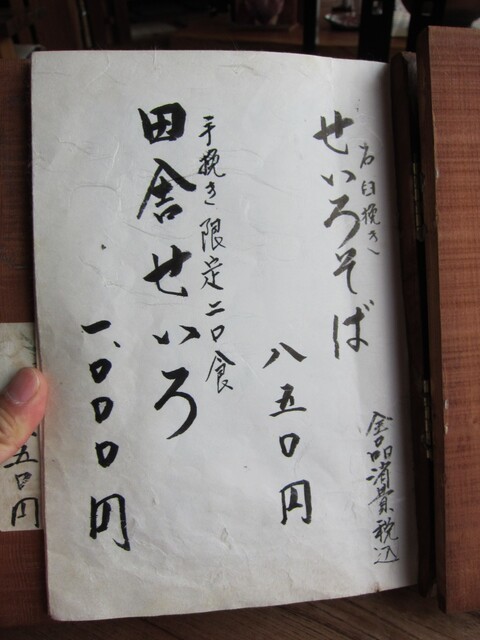 石臼挽き
せいろそば
八五〇円
全品消費税込
手挽き限定二〇食
田舎せいろ
一、〇〇〇円
五〇円